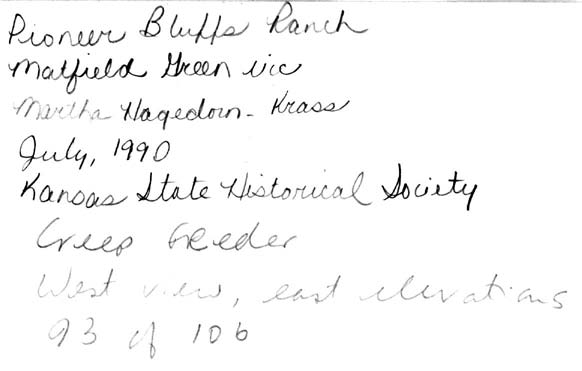 Pioneer Bluffs Ranch
Matfield Green vic
Martha Hagedorn-Krass
July, 1990
Kansas State Historical Society
Creep Feeder
West view, east elevations
93 of 106